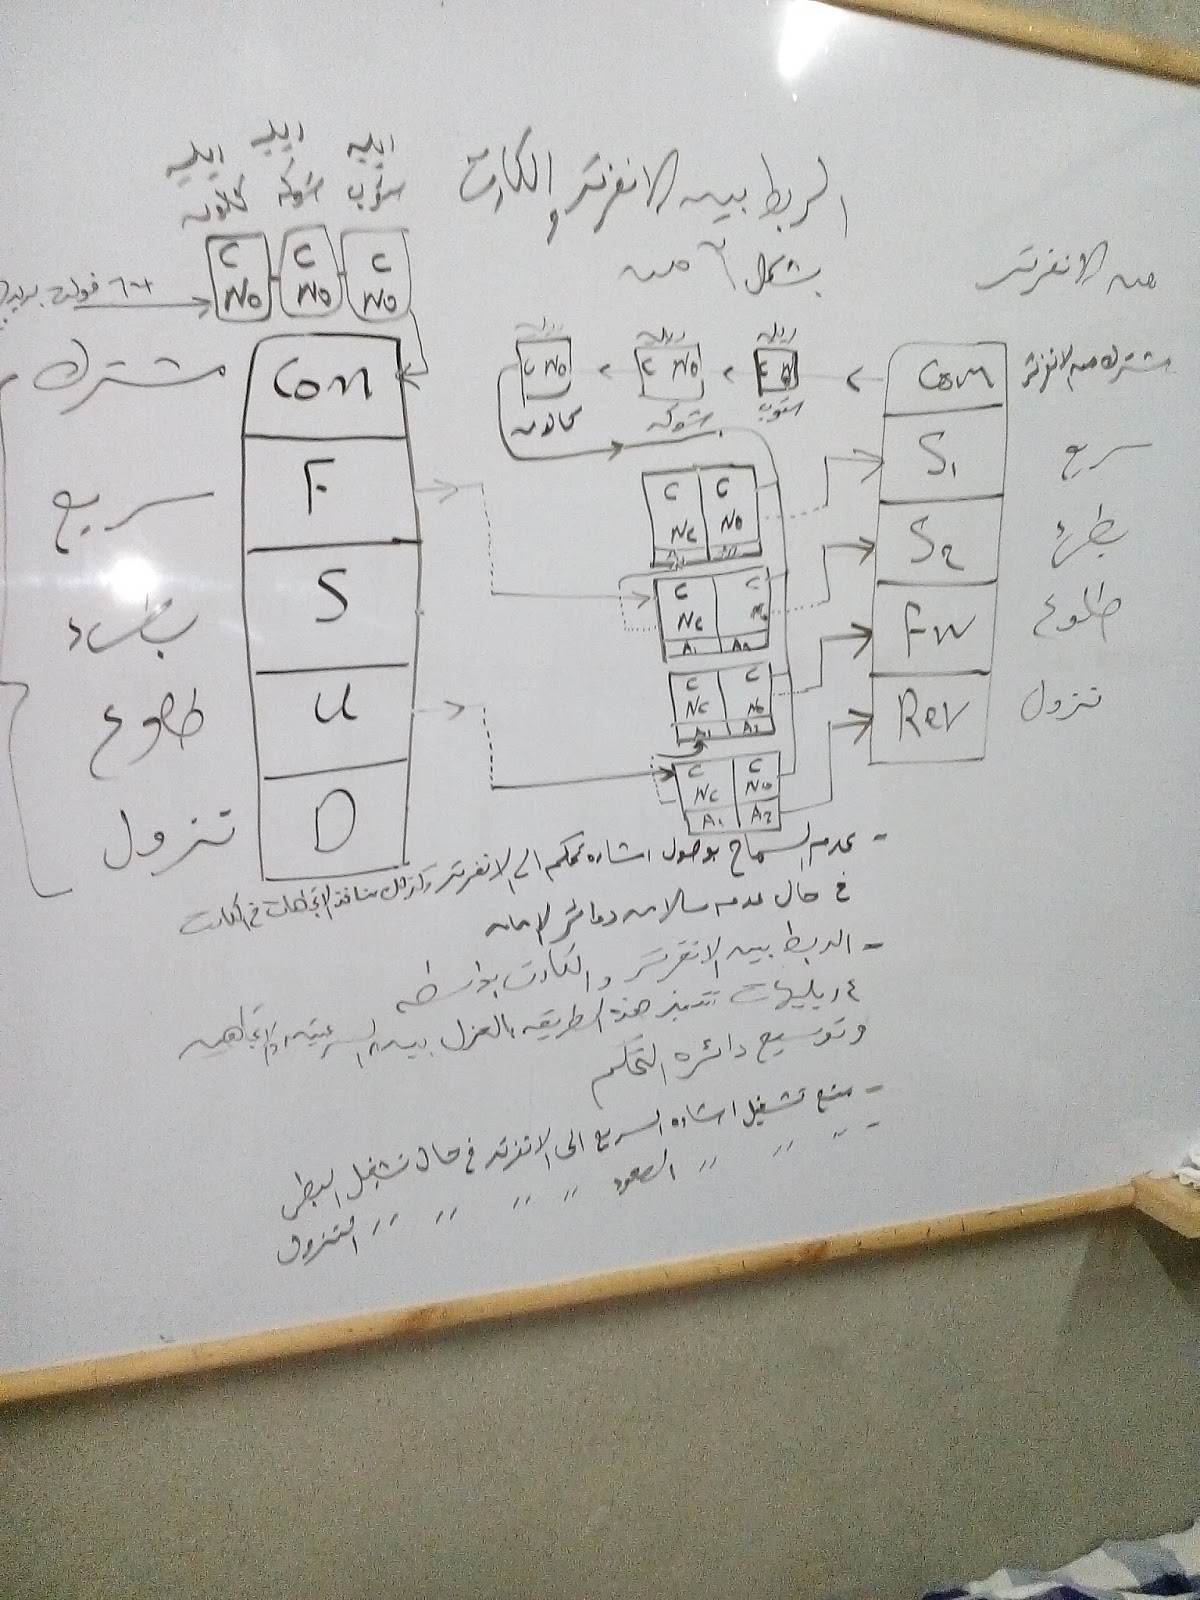 الربط بين الانفرتر والكارت
بشكل آمن
من الانفرتر
ريليه
ستوب
ريليه
شوكه
ريليه
كالون
C
NO
C
NO
C
NO
مشترك
COM
سريع
F
بطيء
S
طلوع
U
نزول
D
ريليه
ريليه
ريليه
C NO
C NO
C NO
كالون
شوكه
ستوب
C
NC
C
NO
C
NC
C
NO
A1
A2
C
NC
C
NO
A1
A2
C
NC
C
NO
A1
A2
COM
مشترك من الانفرتر
S1
سريع
S2
بطئ
FW
طلوع
Rev
نزول
- عدم السماح بوصول اشاره تحكم الى الانفرتر وكذلك منافذ الاتجاهات في الكارت
في حال عدم سلامه دوائر الامان
- الربط بين الانفرتر والكارت بواسطه
٤ ريليهات تتميز هذه الطريقه بالعزل بين السرعتين والاتجاهين
وتوسيع دائره التحكم
- منع تشغيل اشاره السريع الى الانفرتر في حال تشغيل البطئ
- " " " " الصعود " " " " النزول